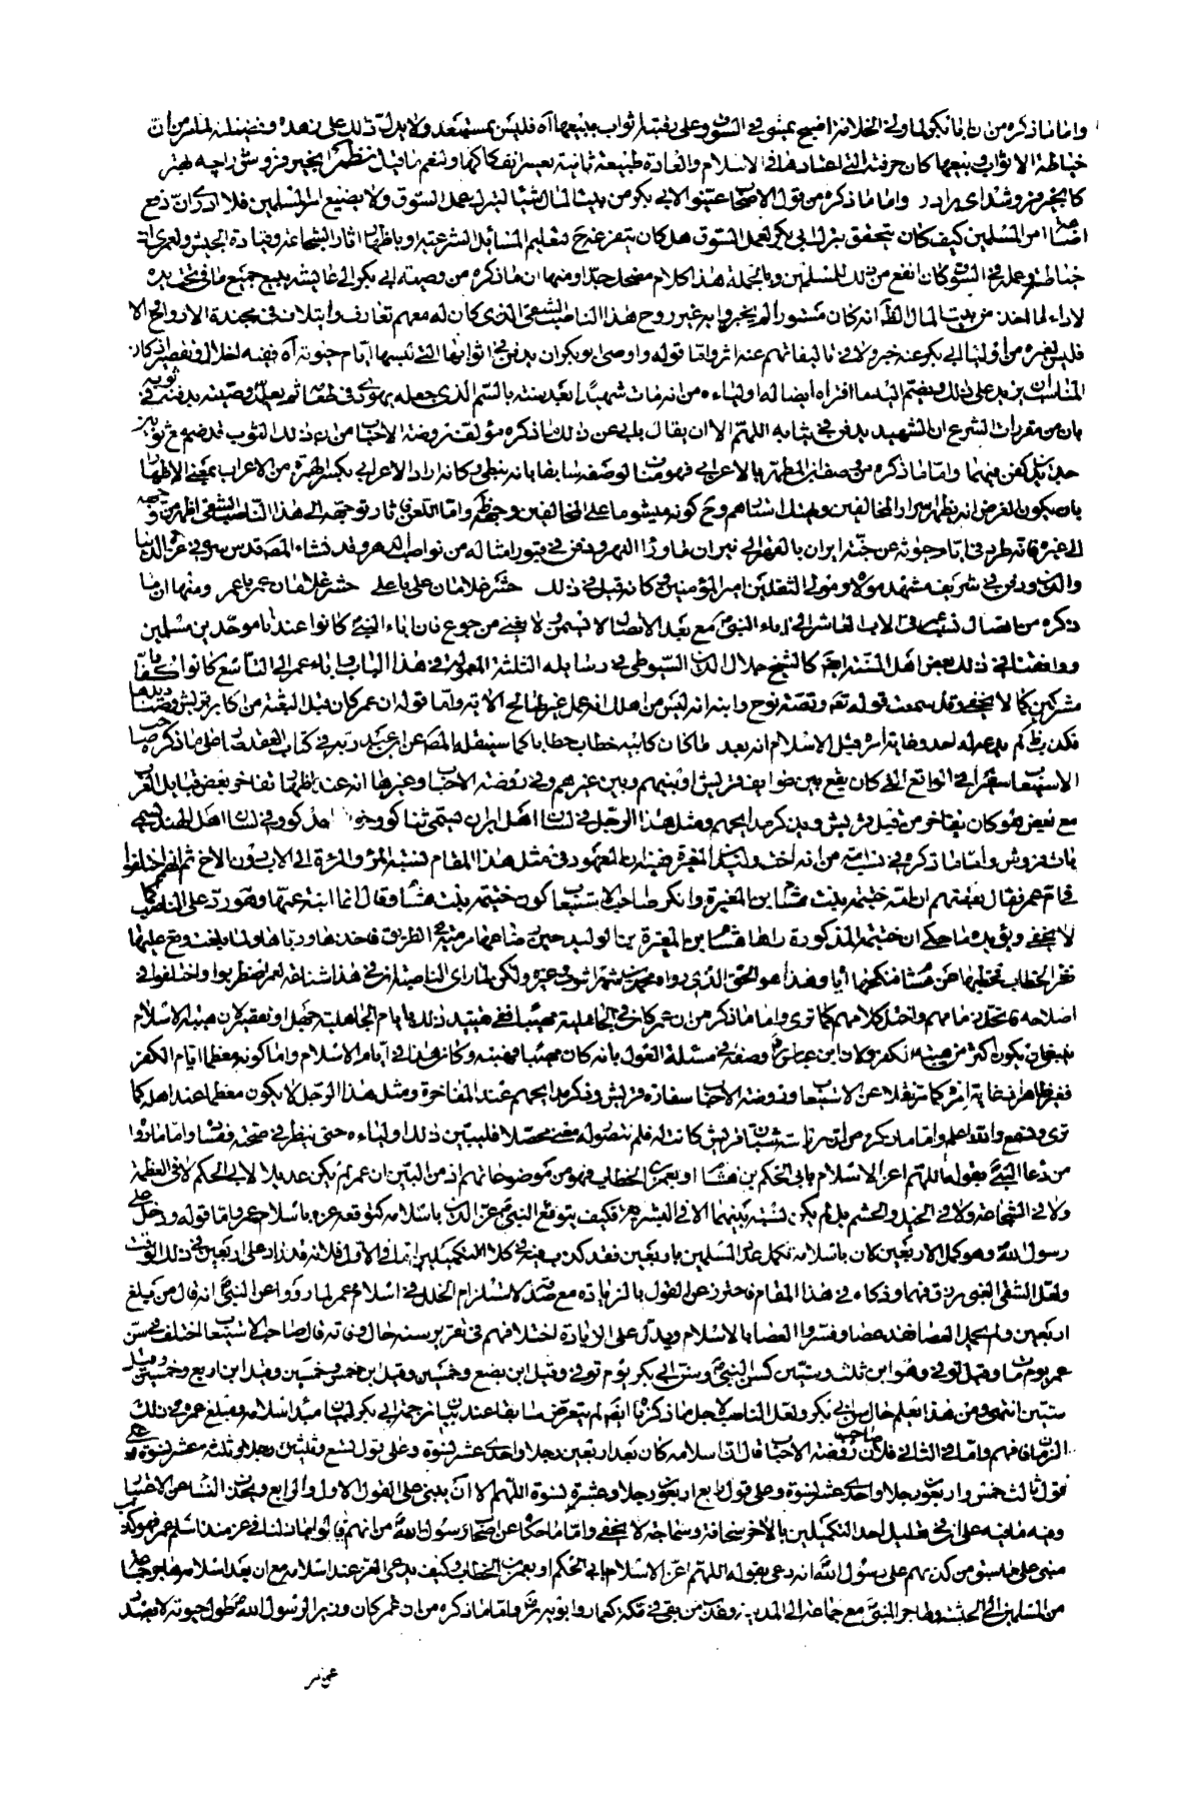 واما ما ذكره من ان ابا بكر لما ولي الخلافة اصبح يمشي في السوق وعلى رقبته اثواب يبيعها آه فليس بمستبعد ولا يدل ذلك على زهده وفضيلته لما مر من ان
خياطة الاثواب وبيعها كان حرفته التي اعتادها في الاسلام والعادة طبيعة ثانية يعسر انفكاكها ونعم ما قيل نظم بخيز فروش راچه هنر
واما ما ذكره من قول الاصحاب عينوا لابي بكر من بيت المال شيئا ليترك عمل السوق ولا يضيع امر المسلمين فلا ادري ان
امر المسلمين كيف كان يتحقق بترك ابي بكر لعمل السوق هل كان يتفرغ ح لتعليم المسائل الشرعية او باظهار اثار الشجاعة وقيادة الجيش ولعمري ان
خياطته وعمله في السوق كان انفع من ذلك للمسلمين وبالجملة هذا كلام مضمحل جدا ومنها ان ما ذكره من وصيته ابي بكر الى عايشة ببيع جميع ما في يده
لاداء ما اخذ من بيت المال الظ انه كان مستورا لم يخبر به غير روح هذا الناصب الشقي الذي كان له معهم تعارف وايتلاف في مجندة الارواح والا
فليس لغيره من اولياء ابي بكر عنه خبر ولا في تاليفاتهم عنه اثر واما قوله واوصى ابو بكر ان يدفن في اثوابه التي لبسها ايام حيوته آه ففيه اخلال وتقصير اذ كان
المناسب ان يزيد على ذلك ويضم اليه ما افتراه ايضا له اولياءه من انه مات شهيدا بعد سنة بالسم الذي جعله يهودي في طعامه ثم يعلل وصيته بدفنه في ثوبيه
بان من مقررات الشرع ان الشهيد يدفن في ثيابه اللهم الا ان يقال بأبى عن ذلك ما ذكره مؤلف روضة الاحباب من ان ذلك الثوب قد ضم مع ثوبين
جديدين كفن فيهما واما ما ذكره من وصفه المطهر بالاعرابي
بان يكون الغرض انه يظهر اسرار المخالفين وهتك استارهم وح كونه ميشوما على المخالفين وجهه ظ واما اللعن فانه توجهه الى هذا الناصب الشقي اظهر من توجهه
الى غيره فانه طرد في ايام حيوته عن جنة ايران بالقهر الى نيران ماوراء النهر ودفن في قبور امثاله من نواصب الدهر وقد نشاء المص قدس سره في عزة الدنيا
والدين ودفن في شريف مشهد مولاه ومولى الثقلين امير المؤمنين كانه قيل في ذلك حشر غلامان على با على حشر غلامان عمر با عمر ومنها ان ما
ذكره من اتصال نسب عمر في الاب العاشر الى اباء النبي ص مع بعد الاتصال لا يسمن ولا يغني من جوع فان اباء النبي كانوا عندنا موحدين مسلمين
ووافقنا في ذلك بعض اهل السنة ايضا كالشيخ جلال الدين السيوطي في رسايله الثلثة المعمولة في هذا الباب واباء عمر الى التاسع كانوا كفارا
مشركين كما لا يخفى وقد سمعت قوله تعالى وقصة نوح وابنه انه ليس من اهلك انه عمل غير صالح الاية واما قوله ان عمر كان قبل البعثة من اكابر قريش وصناديدها
فكذب ظ لم يدعه له احد وغاية امره قبل الاسلام انه بعد ما كان كابيه خطاب حطابا كما سينقله المص عن ابن عبد ربه في كتاب العقد صار على ما ذكره صاحب
الاستيعاب سفيرا في الوقايع التي كان يقع بين طوايف قريش او بينهم وبين غيرهم وفي روضة الاحباب وغيرها انه عند اظهار تفاخر بعض قبايل العرب
مع بعض هو كان يفاخر من قبل قريش ويذكر مدايحهم ومثل هذا الرجل في لسان اهل ايران يسمى ثناكو ورجز وفي لسان اهل الهند يسمى
بات فروش واما ما ذكره في نسب امه من انه اخت وليد بن المغيرة ففيه ان المعهود في مثل هذا المقام نسبة المرء والمرءة الى الاب دون الاخ ثم انهم اختلفوا
في ام عمر فقال بعضهم ان امه خيثمة بنت هشام بن المغيرة وانكر صاحب الاستيعاب كون خيثمة بنت هشام وقال انما ابنة عمها وهو رد على الناصب كما
لا يخفى ويؤيده ما حكي ان خيثمة المذكورة راها هشام بن المغيرة بن الوليد حين ضاعها مرمية في الطريق فاخذها ورباها ولما بلغت وقع عليها
نظر الخطاب فخطبها عن هشام فنكحها اياه وهذا هو الحق الذي رواه محمد بن شهراشوب وغيره ولكن لما راى الناصب في هذا شناعة لعمر اضطربوا واختلفوا في
اصلاحه كما ترى واما ما ذكره من ان عمر كان في الجاهلية مهيبا فتقييد ذلك بايام الجاهلية جهل او تعصب لان هيبة الاسلام
ينبغي ان يكون اكثر من هيبة الكفر ولان ابن عباس رض وصفه في مسئلة العول بانه كان مهيبا فهبته وكان هذا في ايام الاسلام واما كونه معظما ايام الكفر
فغير ظاهر وغاية امره كما مر نقلا عن الاستيعاب وروضة الاحباب سفارة قريش وذكر مدايحهم عند المفاخرة ومثل هذا الرجل لا يكون معظما عند اهله كما
ترى وتسمع والله اعلم واما ما ذكره من ان سفارت شبان قريش كانت له فلم نتصور له معنى محصلا فليبين ذلك اولياءه حتى ينظر في صحته وفساده واما ما رووا
من دعاء النبي ص بقوله اللهم اعز الاسلام بابي الحكم بن هشام او بعمر بن الخطاب فهو من موضوعاتهم اذ من البين ان عمر لم يكن عديلا لابي الحكم لا في العظمة
ولا في الشجاعة ولا في الخيل والحشم بل لم يكن نسبة بينهما الا في الشر فكيف يتوقع النبي ص عز الدين باسلامه كتوقعه عزه باسلام عمر واما قوله ودخل على
رسول الله وهو كمل الاربعين كان باسلامه تكمل عدد المسلمين باربعين فقد كذب فيه في كلا التكميلين اما في الاول فلانه قد زاد على اربعين في ذلك الوقت
ولعل الشقي الغبي لدقة فهمه وذكاءه في هذا المقام احترز عن القول بالزيادة مع صدقه لاستلزام الخلل في اسلام عمر لما رووا عن النبي ص انه قال من بلغ
اربعين ولم يحمل العصا فقد عصا وفسروا العصا بالاسلام ويدل على الزيادة اختلافهم في تقرير سنه حال وفاته قال صاحب الاستيعاب اختلف في سن
عمر يوم مات وقيل توفي وهو ابن ثلث وستين كسن النبي ص وسن ابي بكر يوم توفي وقيل ابن بضع وخمسين وقيل ابن خمس وخمسين وقيل ابن اربع وخمسين وقيل
ستين انتهى ومن هذا تعلم حال سن ابي بكر ولعل الناصب لاجل ما ذكرناه ايضا لم يتعرض سابقا عند بيان ترجمة ابي بكر لبيان مبدء اسلامه ومبلغ عمره في ذلك
الزمان فافهم واما في الثاني فلان صاحب روضة الاحباب قال ان اسلامه كان بعد اربعين رجلا واحدى عشر نسوة وعلى قول تسع وثلثين رجلا وثلثة عشر نسوة وعلى
قول ثالث خمس واربعون رجلا واحدى عشر نسوة وعلى قول رابع اربعون رجلا وعشرة نسوة اللهم الا ان يبنى على القول الاول والرابع ويخرج النساء عن الاعتبار
وفيه ما فيه على ان في تعليل احد التكميلين بالاخر سخافة وسماجة لا يخفى واما ما حكاه عن اصحاب رسول الله من انهم قالوا ما زلنا في عز منذ اسلم عمر فهو كذب
مبني على ما سبق من كذبهم على رسول الله انه دعى بقوله اللهم اعز الاسلام بابي الحكم او بعمر بن الخطاب وكيف يدعى العز عند اسلامه مع ان بعد اسلامه هاجر جماعة
من المسلمين الى الحبشة وهاجر النبي ص مع جماعة الى المدينة وعذب من بقي في مكة كعمار وابويه واما ما ذكره من ان عمر كان وزيرا لرسول الله طول حيوته لا يصدر
عن سر